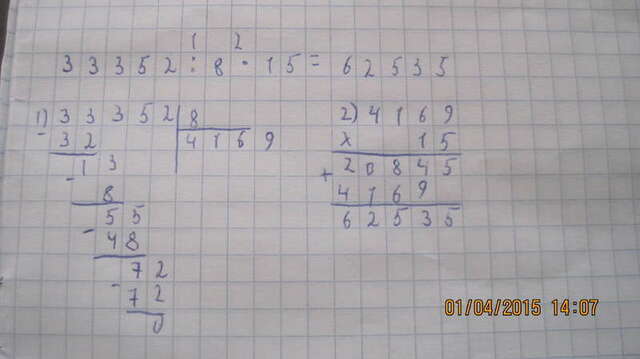 1 2
33352 : 8 · 15 = 62535
1) 33352 | 8
- 32 | 4169
- 13
8
55
- 48
72
- 72
0
2) 4169
x 15
+ 20845
4169
62535
01/04/2015 14:07